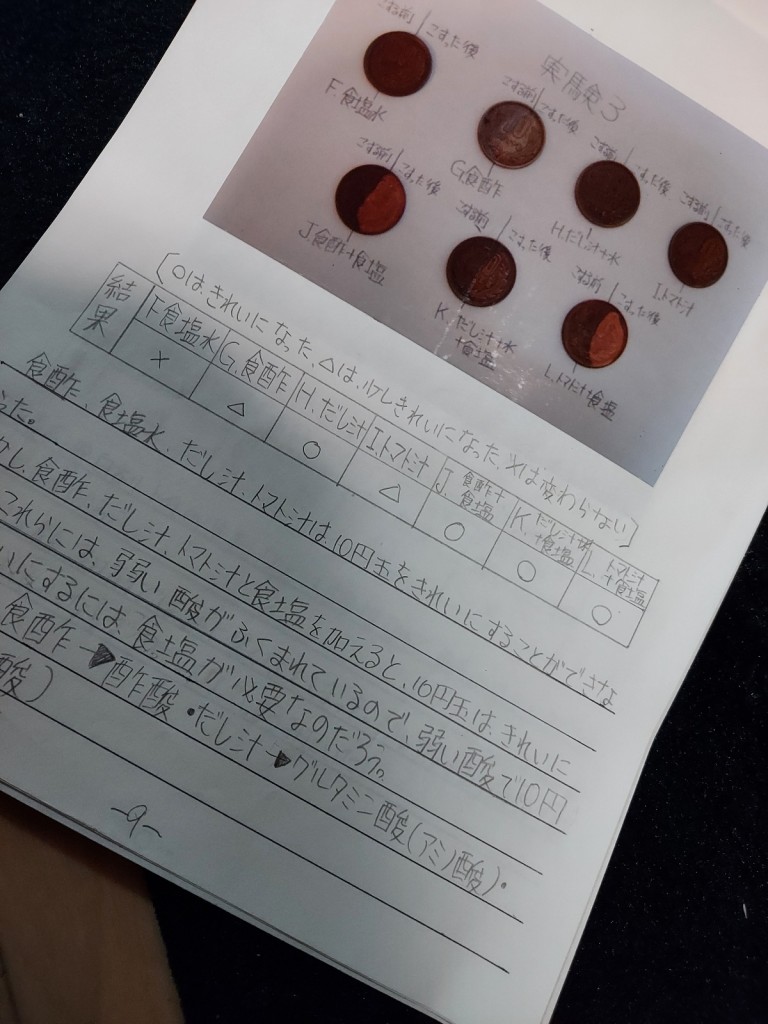 実験3
こする前 こすった後
F.食塩水
こする前 こすった後
G.食酢
こする前 こすった後
H.だし汁+水
こする前 こすった後
I.トマト汁
こする前 こすった後
J.食酢+食塩
こする前 こすった後
K.だし汁+水
+食塩
こする前 こすった後
L.トマト汁+食塩
[○は、きれいになった、△は、少しきれいになった、×は変わらない]
結果 F.食塩水 G.食酢 H.だし汁 I.トマト汁 J.食酢+食塩 K.だし汁+水+食塩 L.トマト汁+食塩
× △ ○ △ ○ ○ ○
食酢、食塩水、だし汁、トマト汁は、10円玉をきれいにすることができな
った。
かし、食酢、だし汁、トマト汁と食塩を加えると、10円玉は、きれいに
これらには、弱い酸がふくまれているので、弱い酸で10円
いにするには、食塩が必要なのだろう。
食酢→酢酸・だし汁→グルタミン酸(アミノ酸)・
酸)
-9-